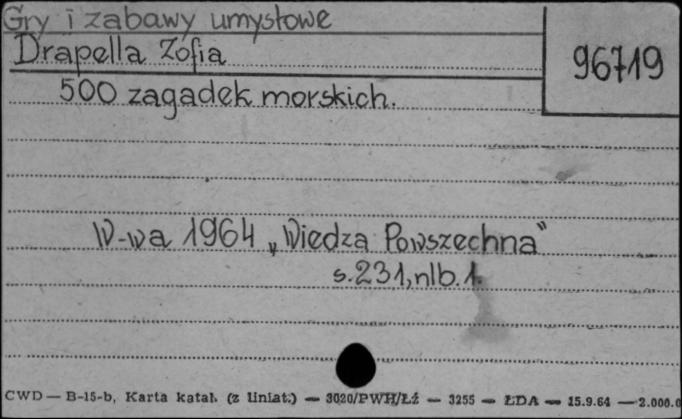 Gry i zabawy umysłowe
Drapella Zofia
96719
500 zagadek morskich.
W-wa 1964 „Wiedza Powszechna"
s.231, nlb. 1.
CWD — B-15-b, Karta katal. (z liniat.) — 3020/PWH/Łź — 3255 — ŁDA — 15.9.64 — 2.000.0